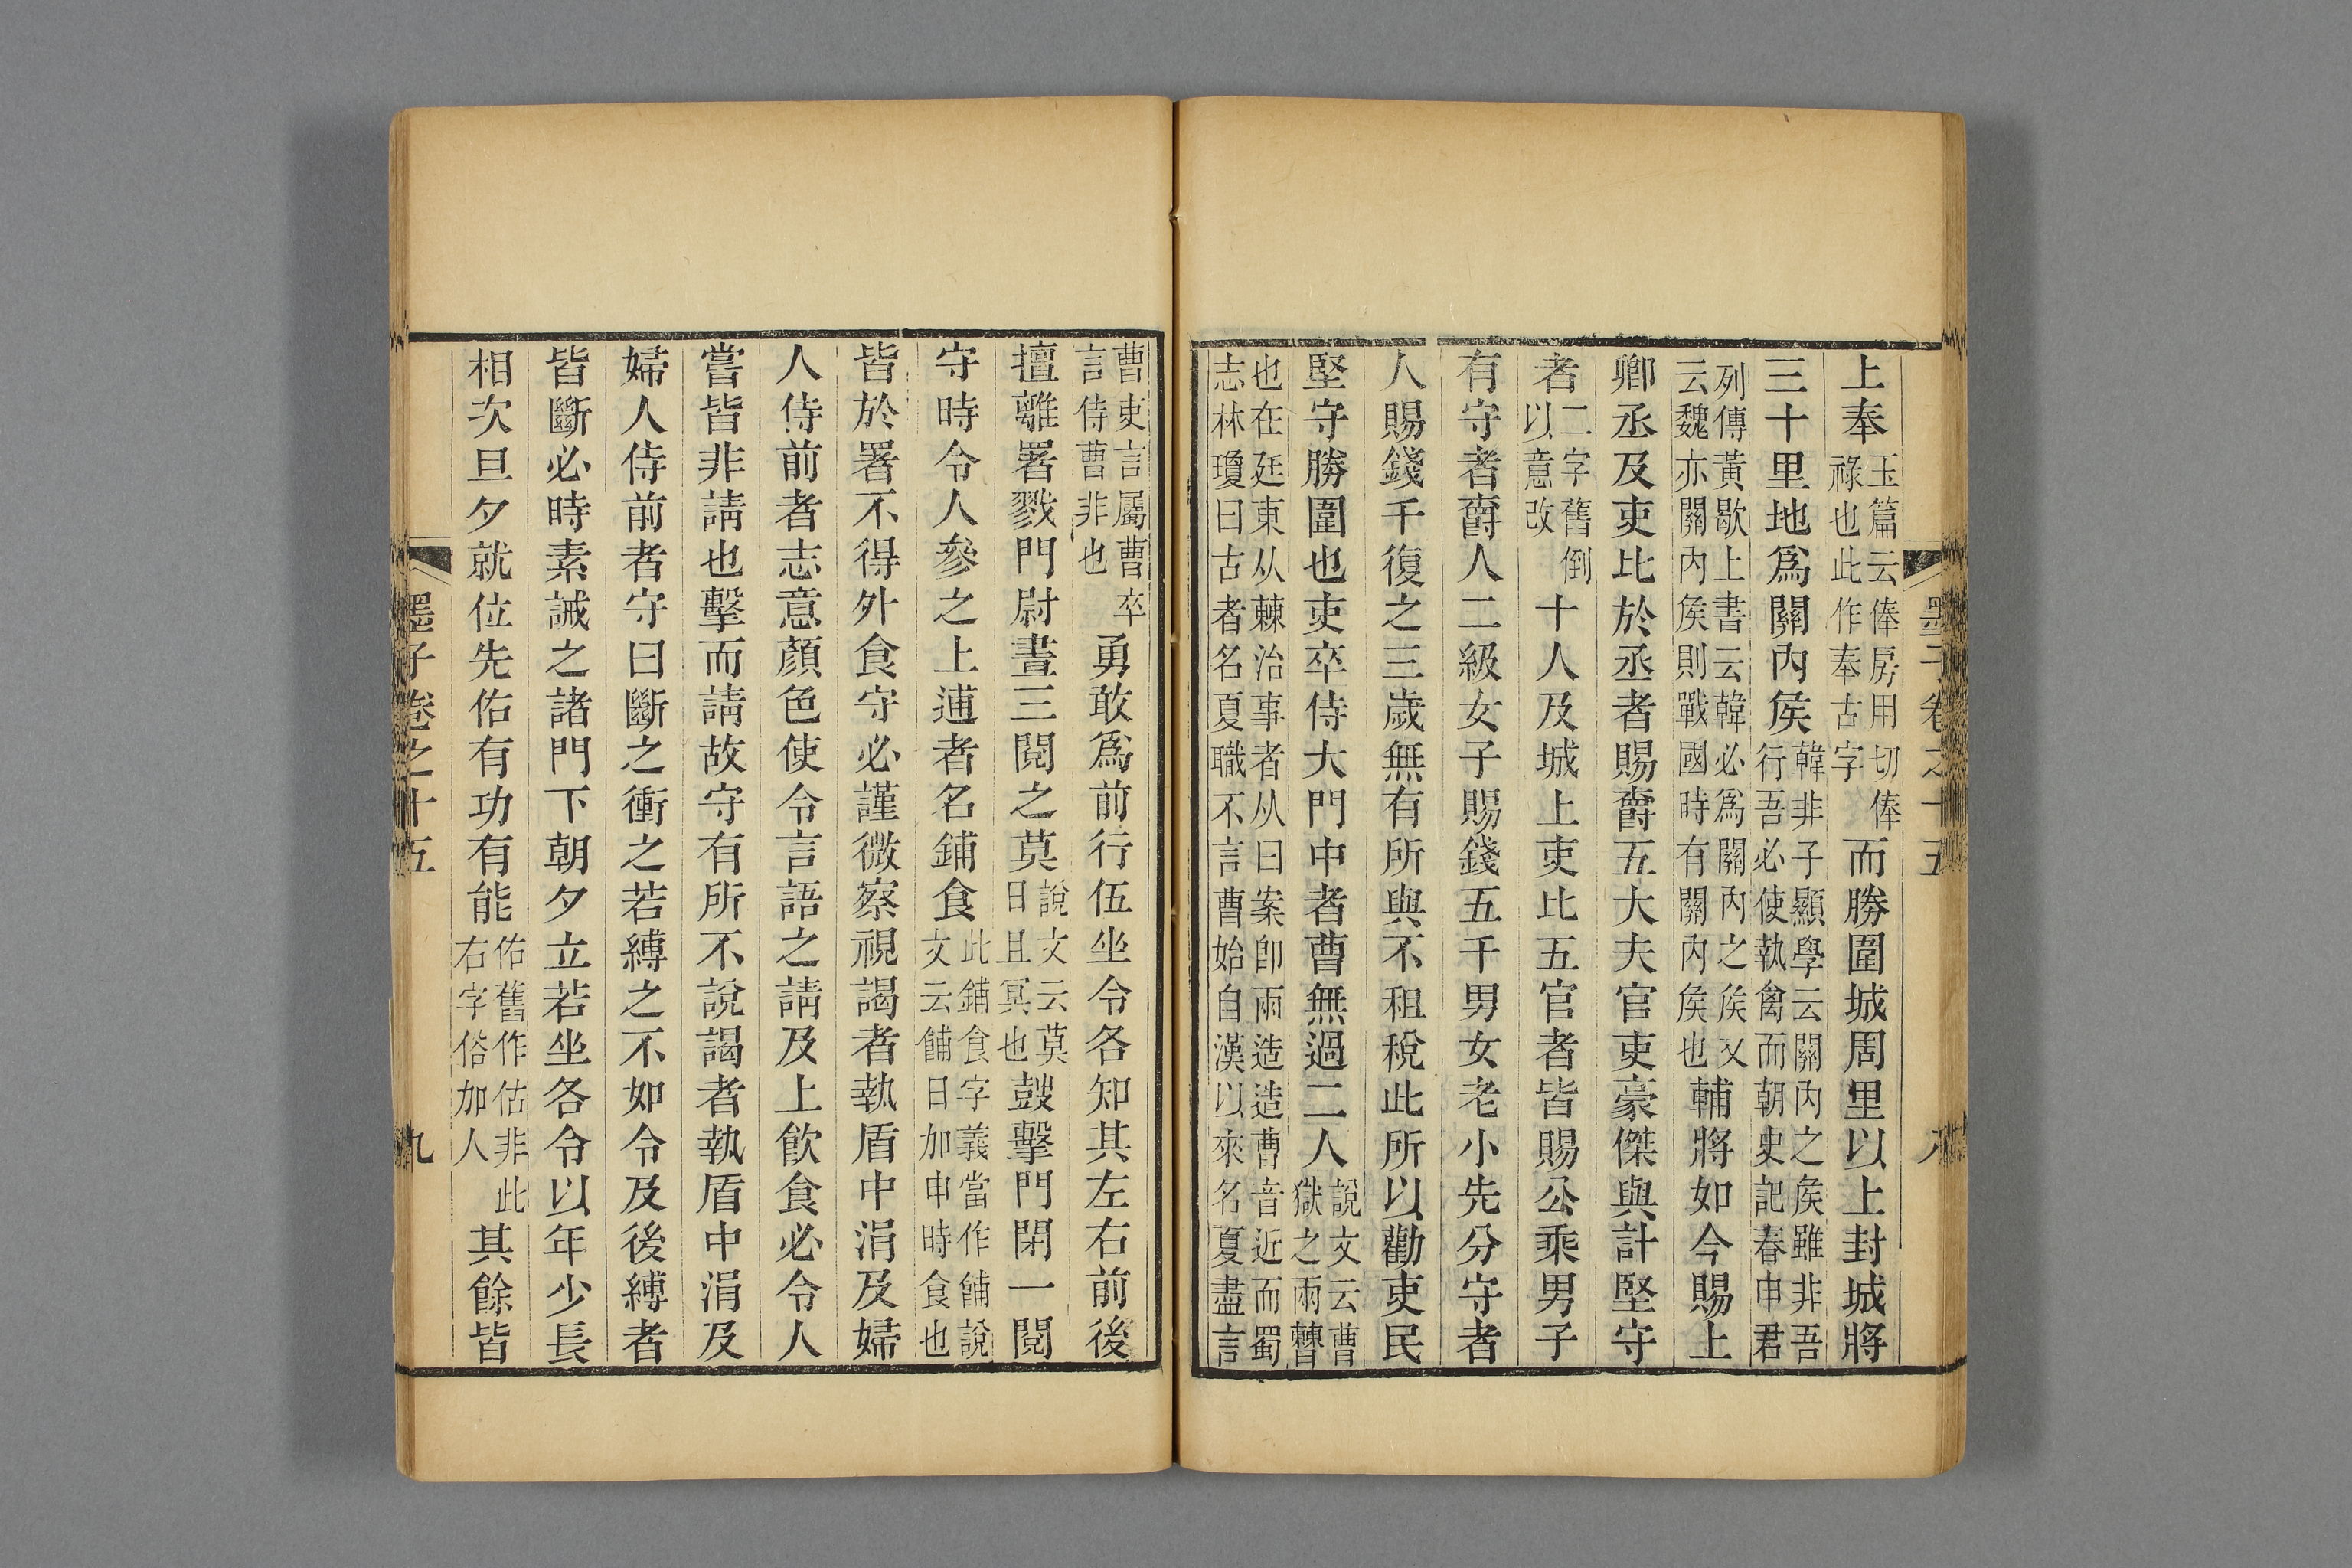 墨子卷之十五
八
上奉玉篇云俸房用切俸祿也此作奉古字而勝圍城周里以上封城將
三十里地爲關內矦韓非子顯學云關內之矦雖非吾行吾必使執禽而朝史記春申君
列傳黃歇上書云韓必爲關內之矦又云魏亦關內矦則戰國時有關內矦也輔將如今賜上
卿丞及吏比於丞者賜爵五大夫官吏豪傑與計堅守
者二字舊倒以意改十人及城上吏比五官者皆賜公乘男子
有守者爵人二級女子賜錢五千男女老小先分守者
人賜錢千復之三歲無有所與不租稅此所以勸吏民
堅守勝圍也吏卒侍大門中者曹無過二人說文云曹獄之兩曹
也在廷東从棘治事者从曰案卽兩造造曹音近而蜀志秫瓊曰古者名夏職不言曹始自漢以來名夏盡言
曹吏言屬曹卒言侍曹非也勇敢爲前行伍坐令各知其左右前後
擅離署戮門尉晝三閱之莫說文云莫日且冥也鼓擊門閉一閱
守時令人參之上逋者名鋪食此鋪食字義當作餔說文云餔日加申時食也
皆於署不得外食守必謹微察視謁者執盾中涓及婦
人侍前者志意顏色使令言語之請及上飲食必令人
嘗皆非請也擊而請故守有所不說謁者執盾中涓及
婦人侍前者守曰斷之衝之若縛之不如令及後縛者
皆斷必時素誡之諸門下朝夕立若坐各令以年少長
相次旦夕就位先佑有功有能佑舊作估非此右字俗加人其餘皆
墨子卷之十五
九